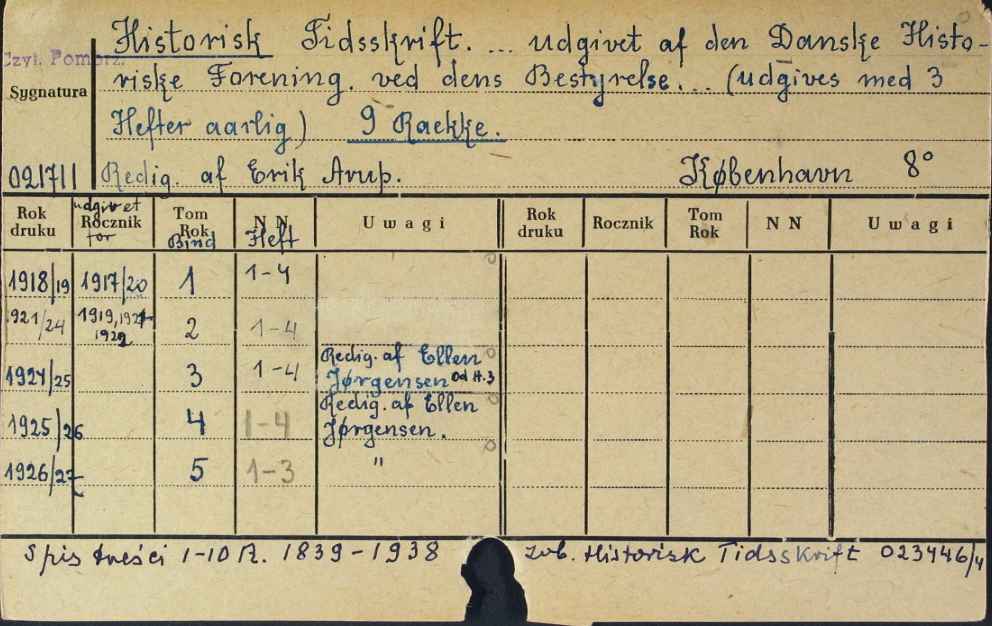 Historisk Tidsskrift. ... udgivet af den Danske Histo-
Czyt. Pomorz.
riske Forening. ved dens Bestyrelse... (udgives med 3
Sygnatura
Hefter aarlig) 9 Raekke.
021711 Redig. af Erik Arup. København 8°
Rok druku udgivet Rocznik for Tom Rok Bind N N Heft Uwagi Rok druku Rocznik Tom Rok N N Uwagi
1918/19 1917/20 1 1-4
1921/24 1919, 1922 2 1-4
1924/25 3 1-4 Redig. af Ellen Jørgensen od H.3
1925/26 4 1-4 Redig. af Ellen Jørgensen.
1926/27 5 1-3 "
Spis treści 1-10 R. 1839-1938 zob. Historisk Tidsskrift 023446/4